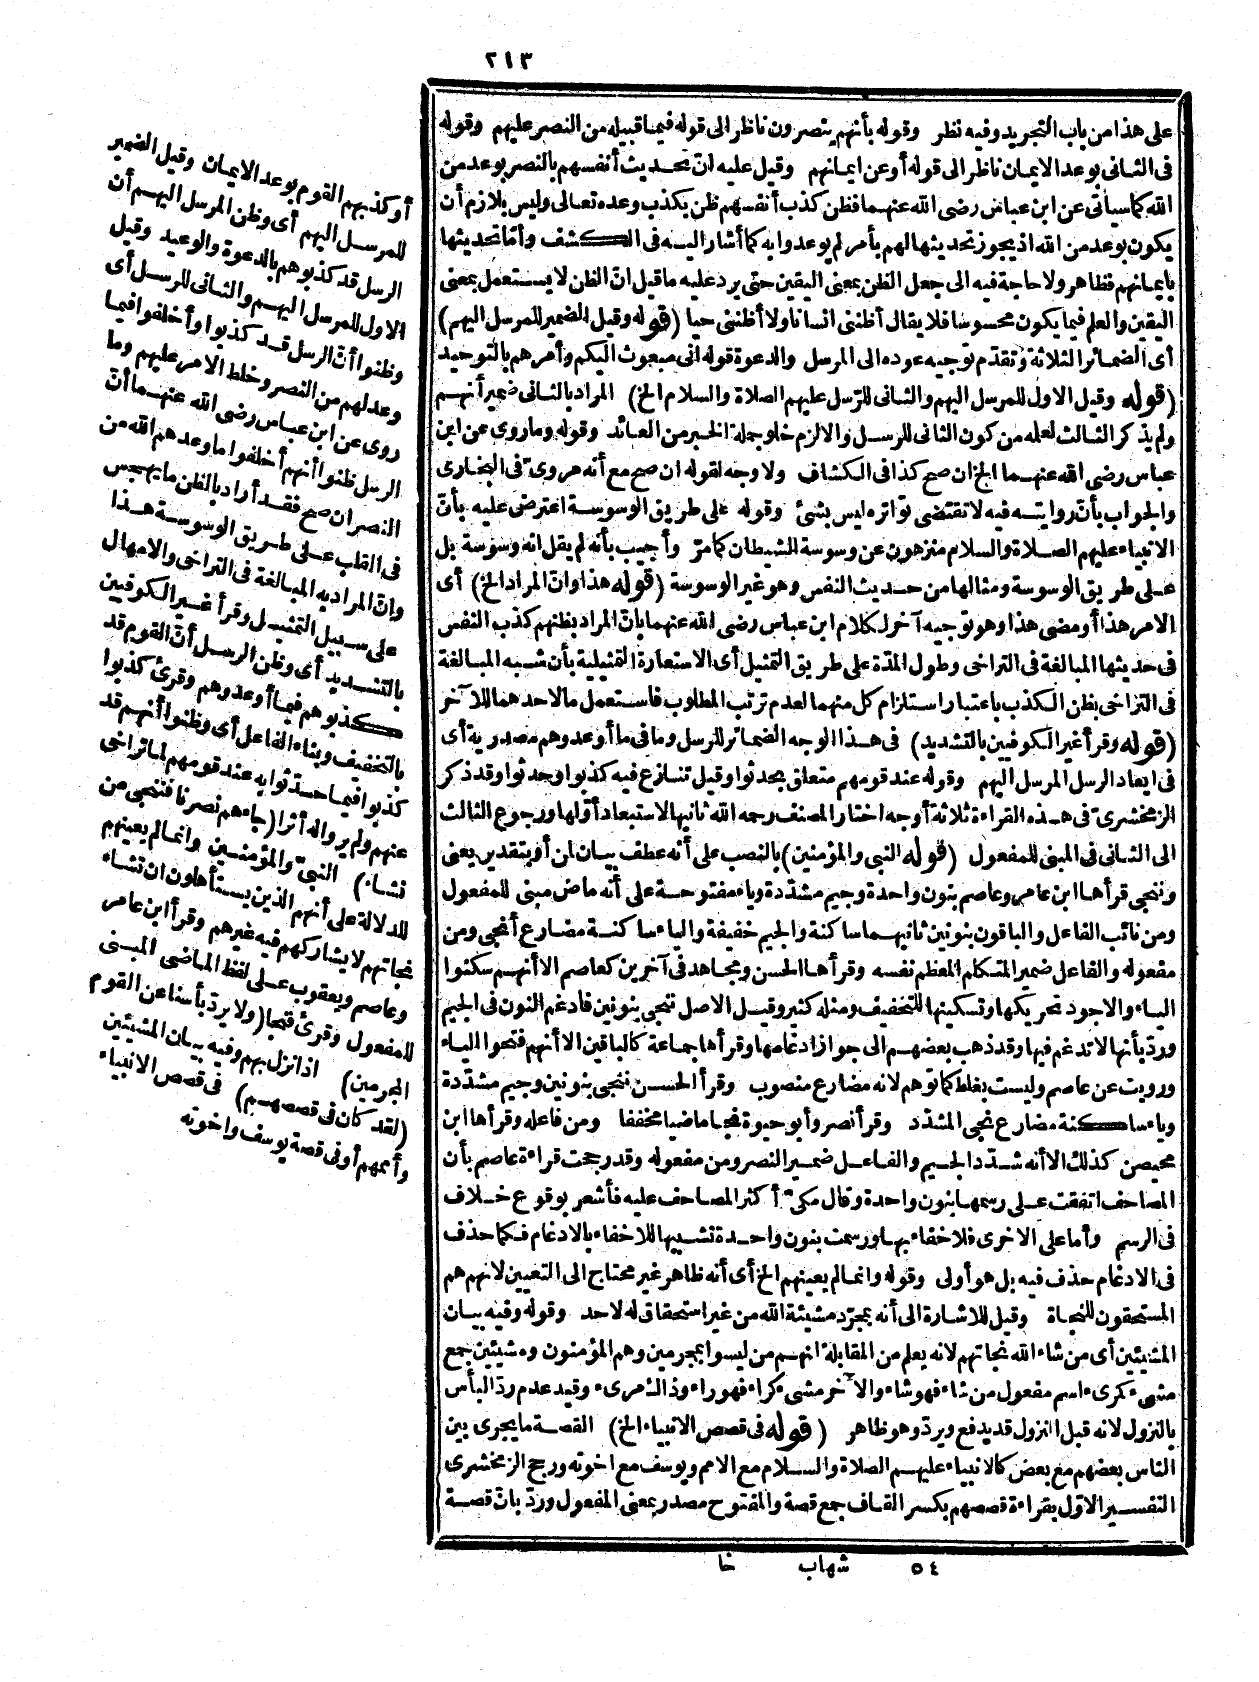 ٢١٣
على هذا من باب التجريد وفيه نظر وقوله بأنهم ينصرون ناظر الى قوله فيما قبيله من النصر عليهم وقوله
فى الثانى بوعد الايمان ناظر الى قوله أو عن ايمانهم وقيل عليه انّ تحديث أنفسهم بالنصر بوعد من
الله كما سيأتى عن ابن عباس رضى الله عنهما فظن كذب أنفسهم ظن بكذب وعده تعالى وليس بلازم أن
يكون بوعد من الله اذ يجوز تحديثها لهم بأمر لم يوعدوا به كما أشار اليه فى الكشف وأمّا تحديثها
بايمانهم فظاهر ولا حاجة فيه الى جعل الظن بمعنى اليقين حتى يرد عليه ما قيل انّ الظن لا يستعمل بمعنى
اليقين والعلم فيما يكون محسوسا فلا يقال أظننى انسانا ولا أظننى حيا (قوله وقيل الضمير للمرسل اليهم)
أى الضمائر الثلاثة وتقدّم توجيه عوده الى المرسل والدعوة قوله انى مبعوث اليكم وأمرهم بالتوحيد
(قوله وقيل الاول للمرسل اليهم والثانى للرّسل عليهم الصلاة والسلام الخ) المراد بالثانى ضمير أنهم
ولم يذكر الثالث لعله من كون الثانى للرسل والالزم خلو جملة الخبر من العائد وقوله وما روى عن ابن
عباس رضى الله عنهما الخ ان صح كذا فى الكشاف ولا وجه لقوله ان صح مع أنه مروىّ فى البخارى
والجواب بأنّ روايته فيه لا تقتضى تواتره ليس بشئ وقوله على طريق الوسوسة اعترض عليه بأنّ
الانبياء عليهم الصلاة والسلام منزهون عن وسوسة الشيطان كما مرّ وأجيب بأنه لم يقل انه وسوسة بل
على طريق الوسوسة ومثالها من حديث النفس وهو غير الوسوسة (قوله هذا وانّ المراد الخ) أى
الامر هذا أو مضى هذا وهو توجيه آخر لكلام ابن عباس رضى الله عنهما بانّ المراد بظنهم كذب النفس
فى حديثها المبالغة فى التراخى وطول المدّة على طريق التمثيل أى الاستعارة التمثيلية بأن شبه المبالغة
فى التراخى بظن الكذب باعتبار استلزام كل منهما لعدم ترتب المطلوب فاستعمل ما لاحدهما للآخر
(قوله وقرأ غير الكوفيين بالتشديد) فى هذا الوجه الضمائر للرسل وما فى ما أوعدوهم مصدرية أى
فى ايعاد الرسل المرسل اليهم وقوله عند قومهم متعلق بحدثوا وقيل تنازع فيه كذبوا وحدثوا وقد ذكر
الزمخشرىّ فى هذه القراءة ثلاثة أوجه اختار المصنف رحمه الله ثانيها لاستبعاد أولها ورجوع الثالث
الى الثانى فى المبنى للمفعول (قوله النبى والمؤمنين) بالنصب على أنه عطف بيان لمن أو بتقدير يعنى
وننجى قرأها ابن عامر وعاصم بنون واحدة وجيم مشدّدة وياء مفتوحة على أنه ماض مبنى للمفعول
ومن نائب الفاعل والباقون بنونين ثانيهما ساكنة والجيم خفيفة والياء ساكنة مضارع أنجى ومن
مفعوله والفاعل ضمير المتكلم المعظم نفسه وقرأها الحسن ومجاهد فى آخرين كعاصم الا أنهم سكنوا
الياء والاجود تحريكها وتسكينها للتخفيف ومثله كثير وقيل الاصل ننجى بنونين فادغم النون فى الجيم
وردّ بأنها لا تدغم فيها وقد ذهب بعضهم الى جواز ادغامها وقرأها جماعة كالباقين الا أنهم فتحوا الياء
ورويت عن عاصم وليست بغلط كما توهم لانه مضارع منصوب وقرأ الحسن ننجى بنونين وجيم مشدّدة
وياء ساكنة مضارع نجى المشدّد وقرأ نصر وأبو حيوة فنجا ماضيا مخففا ومن فاعله وقرأها ابن
محيصن كذلك الا أنه شدّد الجيم والفاعل ضمير النصر ومن مفعوله وقد رجحت قراءة عاصم بأن
المصاحف اتفقت على رسمها بنون واحدة وقال مكىّ أكثر المصاحف عليه فأشعر بوقوع خلاف
فى الرسم وأما على الاخرى فلاخفاء بها ورسمت بنون واحدة تشبيها للاخفاء بالادغام فكما حذف
فى الادغام حذف فيه بل هو أولى وقوله وانما لم يعينهم الخ أى أنه ظاهر غير محتاج الى التعيين لانهم هم
المستحقون للنجاة وقيل للاشارة الى أنه بمجرّد مشيئة الله من غير استحقاق له لاحد وقوله وفيه بيان
المشيئين أى من شاء الله نجاتهم لانه يعلم من المقابلة انهم من ليسوا بمجرمين وهم المؤمنون ومشيئين جمع
مشىء كمرىء اسم مفعول من شاء فهو شاء والآخر مشىء كراء فهو راء وذا لـ مرىء وقيد عدم ردّ البأس
بالنزول لانه قبل النزول قد يدفع ويردّ وهو ظاهر (قوله فى قصص الانبياء الخ) القصة ما يجرى بين
الناس بعضهم مع بعض كالانبياء عليهم الصلاة والسلام مع الامم ويوسف مع اخوته ورجح الزمخشرى
التفسير الاوّل بقراءة قصصهم بكسر القاف جمع قصة والمفتوح مصدر بمعنى المفعول وردّ بانّ قصة
أو كذبهم القوم بوعد الايمان وقيل الضمير
للمرسل اليهم أى وظن المرسل اليهم أن
الرسل قد كذبوهم بالدعوة والوعيد وقيل
الاول للمرسل اليهم والثانى للرسل أى
وظنوا أنّ الرسل قد كذبوا وأخلفوا فيما
وعد لهم من النصر وخلط الامر عليهم وما
روى عن ابن عباس رضى الله عنهما أنّ
الرسل ظنوا أنهم أخلفوا ما وعدهم الله من
النصر ان صح فقد أراد بالظن ما يهجس
فى القلب على طريق الوسوسة هذا
وانّ المراد به المبالغة فى التراخى والامهال
على سبيل التمثيل وقرأ غير الكوفيين
بالتشديد أى وظن الرسل أنّ القوم قد
كذبوهم فيما أوعدوهم وقرئ كذبوا
بالتخفيف وبناء الفاعل أى وظنوا أنهم قد
كذبوا فيما حدّثوا به عند قومهم لما تراخى
عنهم ولم يروا له أثرا (جاءهم نصرنا فننجى من
نشاء) النبىّ والمؤمنين وانما لم يعينهم
للدلالة على أنهم الذين يستأهلون ان نشاء
نجاتهم لا يشاركهم فيه غيرهم وقرأ ابن عامر
وعاصم ويعقوب على لفظ الماضى المبنى
للمفعول وقرئ فنجا (ولا يردّ بأسنا عن القوم
المجرمين) اذا نزل بهم وفيه بيان المشيئين
(لقد كان فى قصصهم) فى قصص الانبياء
وأممهم أو فى قصة يوسف واخوته
٥٤ شهاب خا